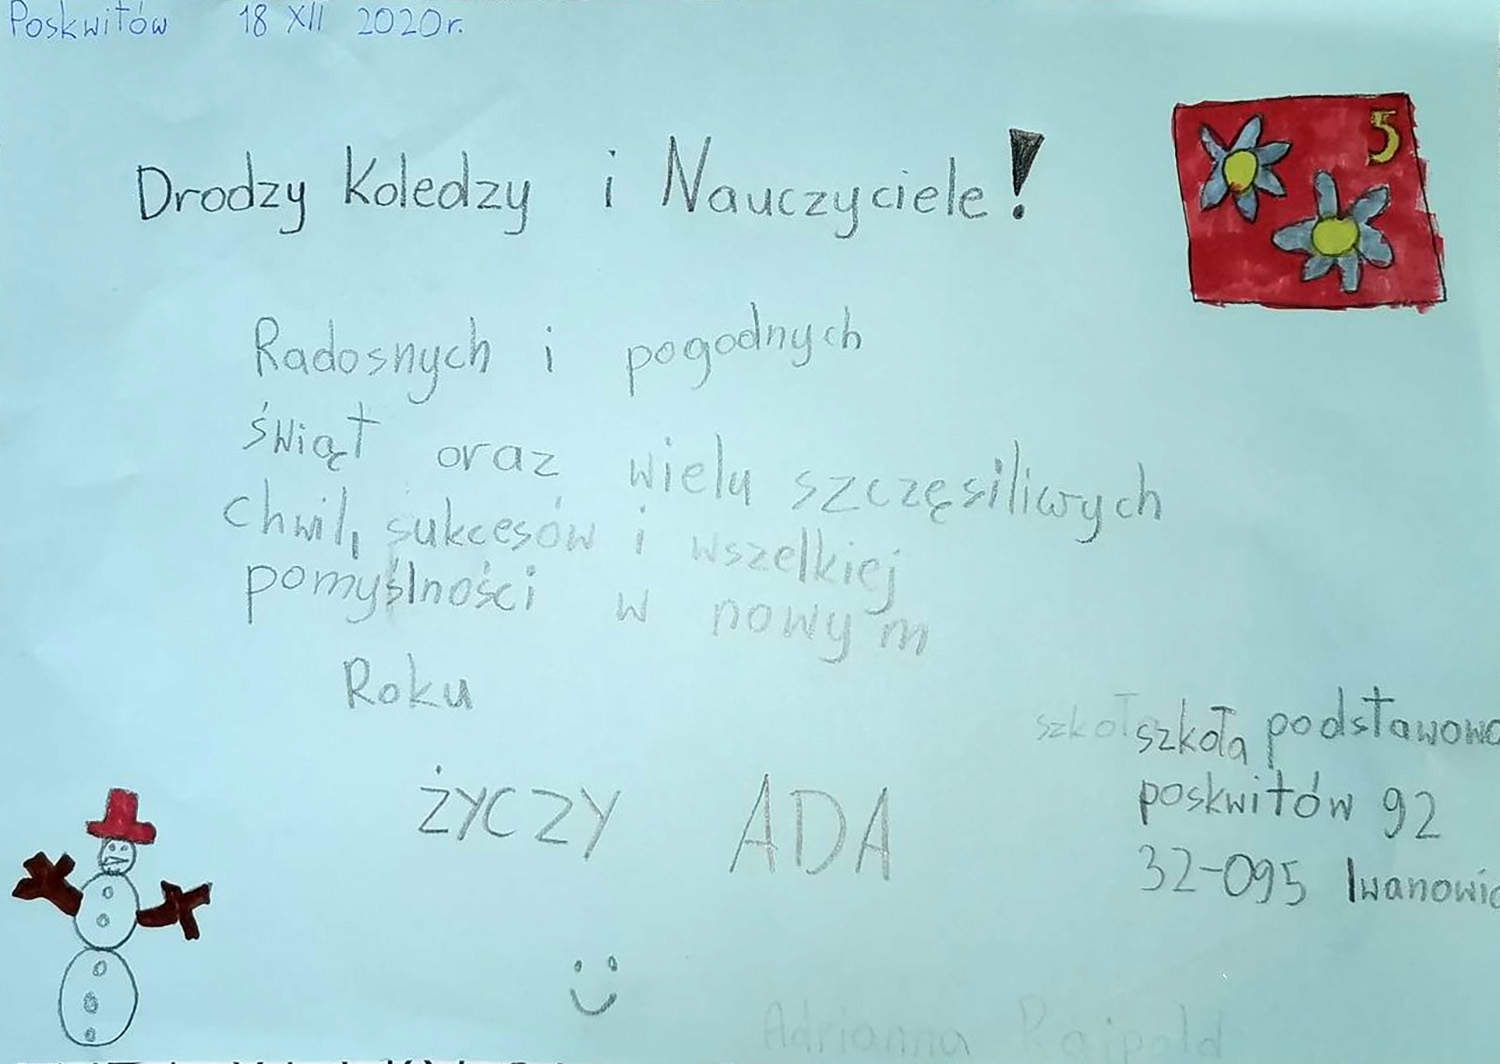 Poskwitów 18 XII 2020r.
5
Drodzy Koledzy i Nauczyciele!
Radosnych i pogodnych
świąt oraz wielu szczęsiliwych
chwil, sukcesów i wszelkiej
pomyślności w nowym
Roku
życzy ADA
szkoł szkoła podstawowa
poskwitów 92
32-095 Iwanowic
Adrianna